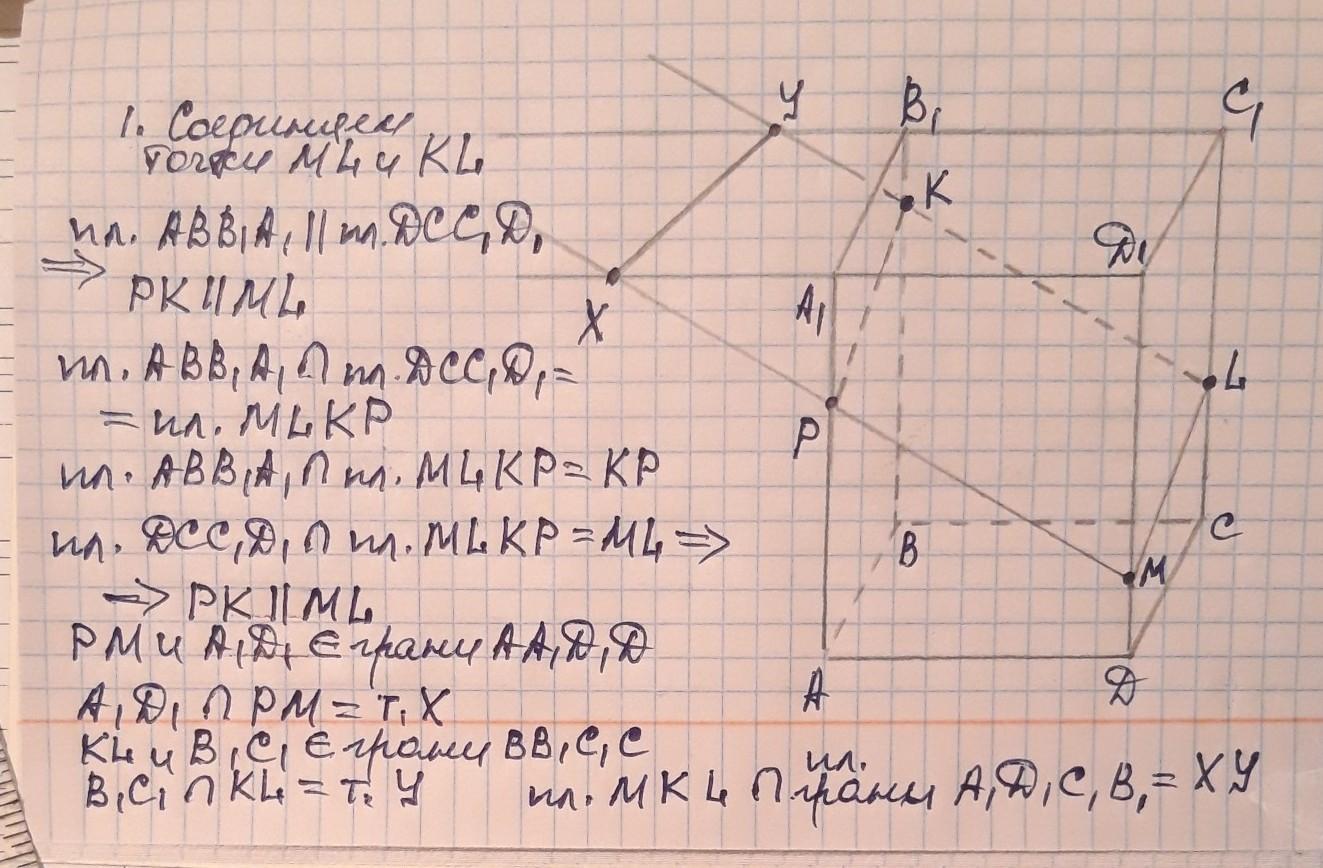 1. Соединяем
точки ML и KL
пл. ABB₁A₁ || пл. DCC₁D₁
⇒ PK || ML
пл. ABB₁A₁ ∩ пл. DCC₁D₁ =
= пл. MLKP
пл. ABB₁A₁ ∩ пл. MLKP = KP
пл. DCC₁D₁ ∩ пл. MLKP = ML ⇒
⇒ PK || ML
PM и A₁D₁ ∈ грани AA₁D₁D
A₁D₁ ∩ PM = т. X
KL и B₁C₁ ∈ грани BB₁C₁C
B₁C₁ ∩ KL = т. У
пл.
пл. MKL ∩ грани A₁D₁C₁B₁ = XУ
У
B₁
C₁
K
D₁
X
A₁
L
P
B
C
M
A
D